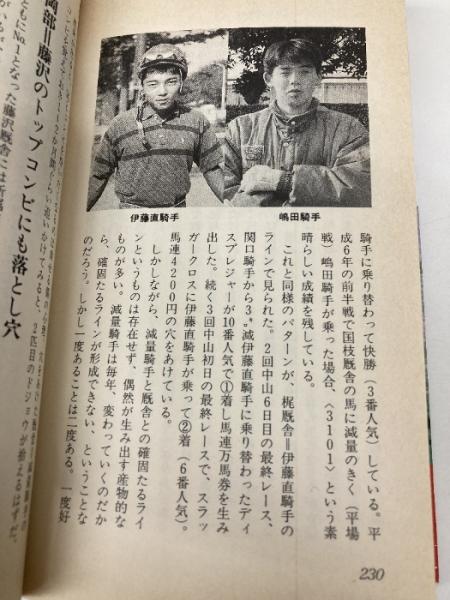 伊藤直騎手
嶋田騎手
騎手に乗り替わって快勝（３番人気）している。平
成６年の前半戦で国枝厩舎の馬に減量のきく（平場
戦）嶋田騎手が乗った場合、〈３１０１〉という素
晴らしい成績を残している。
これと同様のパターンが、梶厩舎＝伊藤直騎手の
ラインで見られた。２回中山６日目の最終レース、
関口騎手から３㌔減伊藤直騎手に乗り替わったディ
スプレジャーが10番人気で①着し馬連万馬券を生み
出した。続く３回中山初日の最終レースで、スラッ
ガークロスに伊藤直騎手が乗って②着（６番人気）。
馬連４２００円の穴をあけている。
しかしながら、減量騎手と厩舎との確固たるライ
ンというものは存在せず、偶然が生み出す産物的な
ものが多い。減量騎手は毎年、変わっていくのだか
ら、確固たるラインが形成できない、ということな
のだろう。しかし一度あることは二度ある。一度好
岡部＝藤沢のトップコンビにも落とし穴
ともにNo.1となった藤沢厩舎には
230